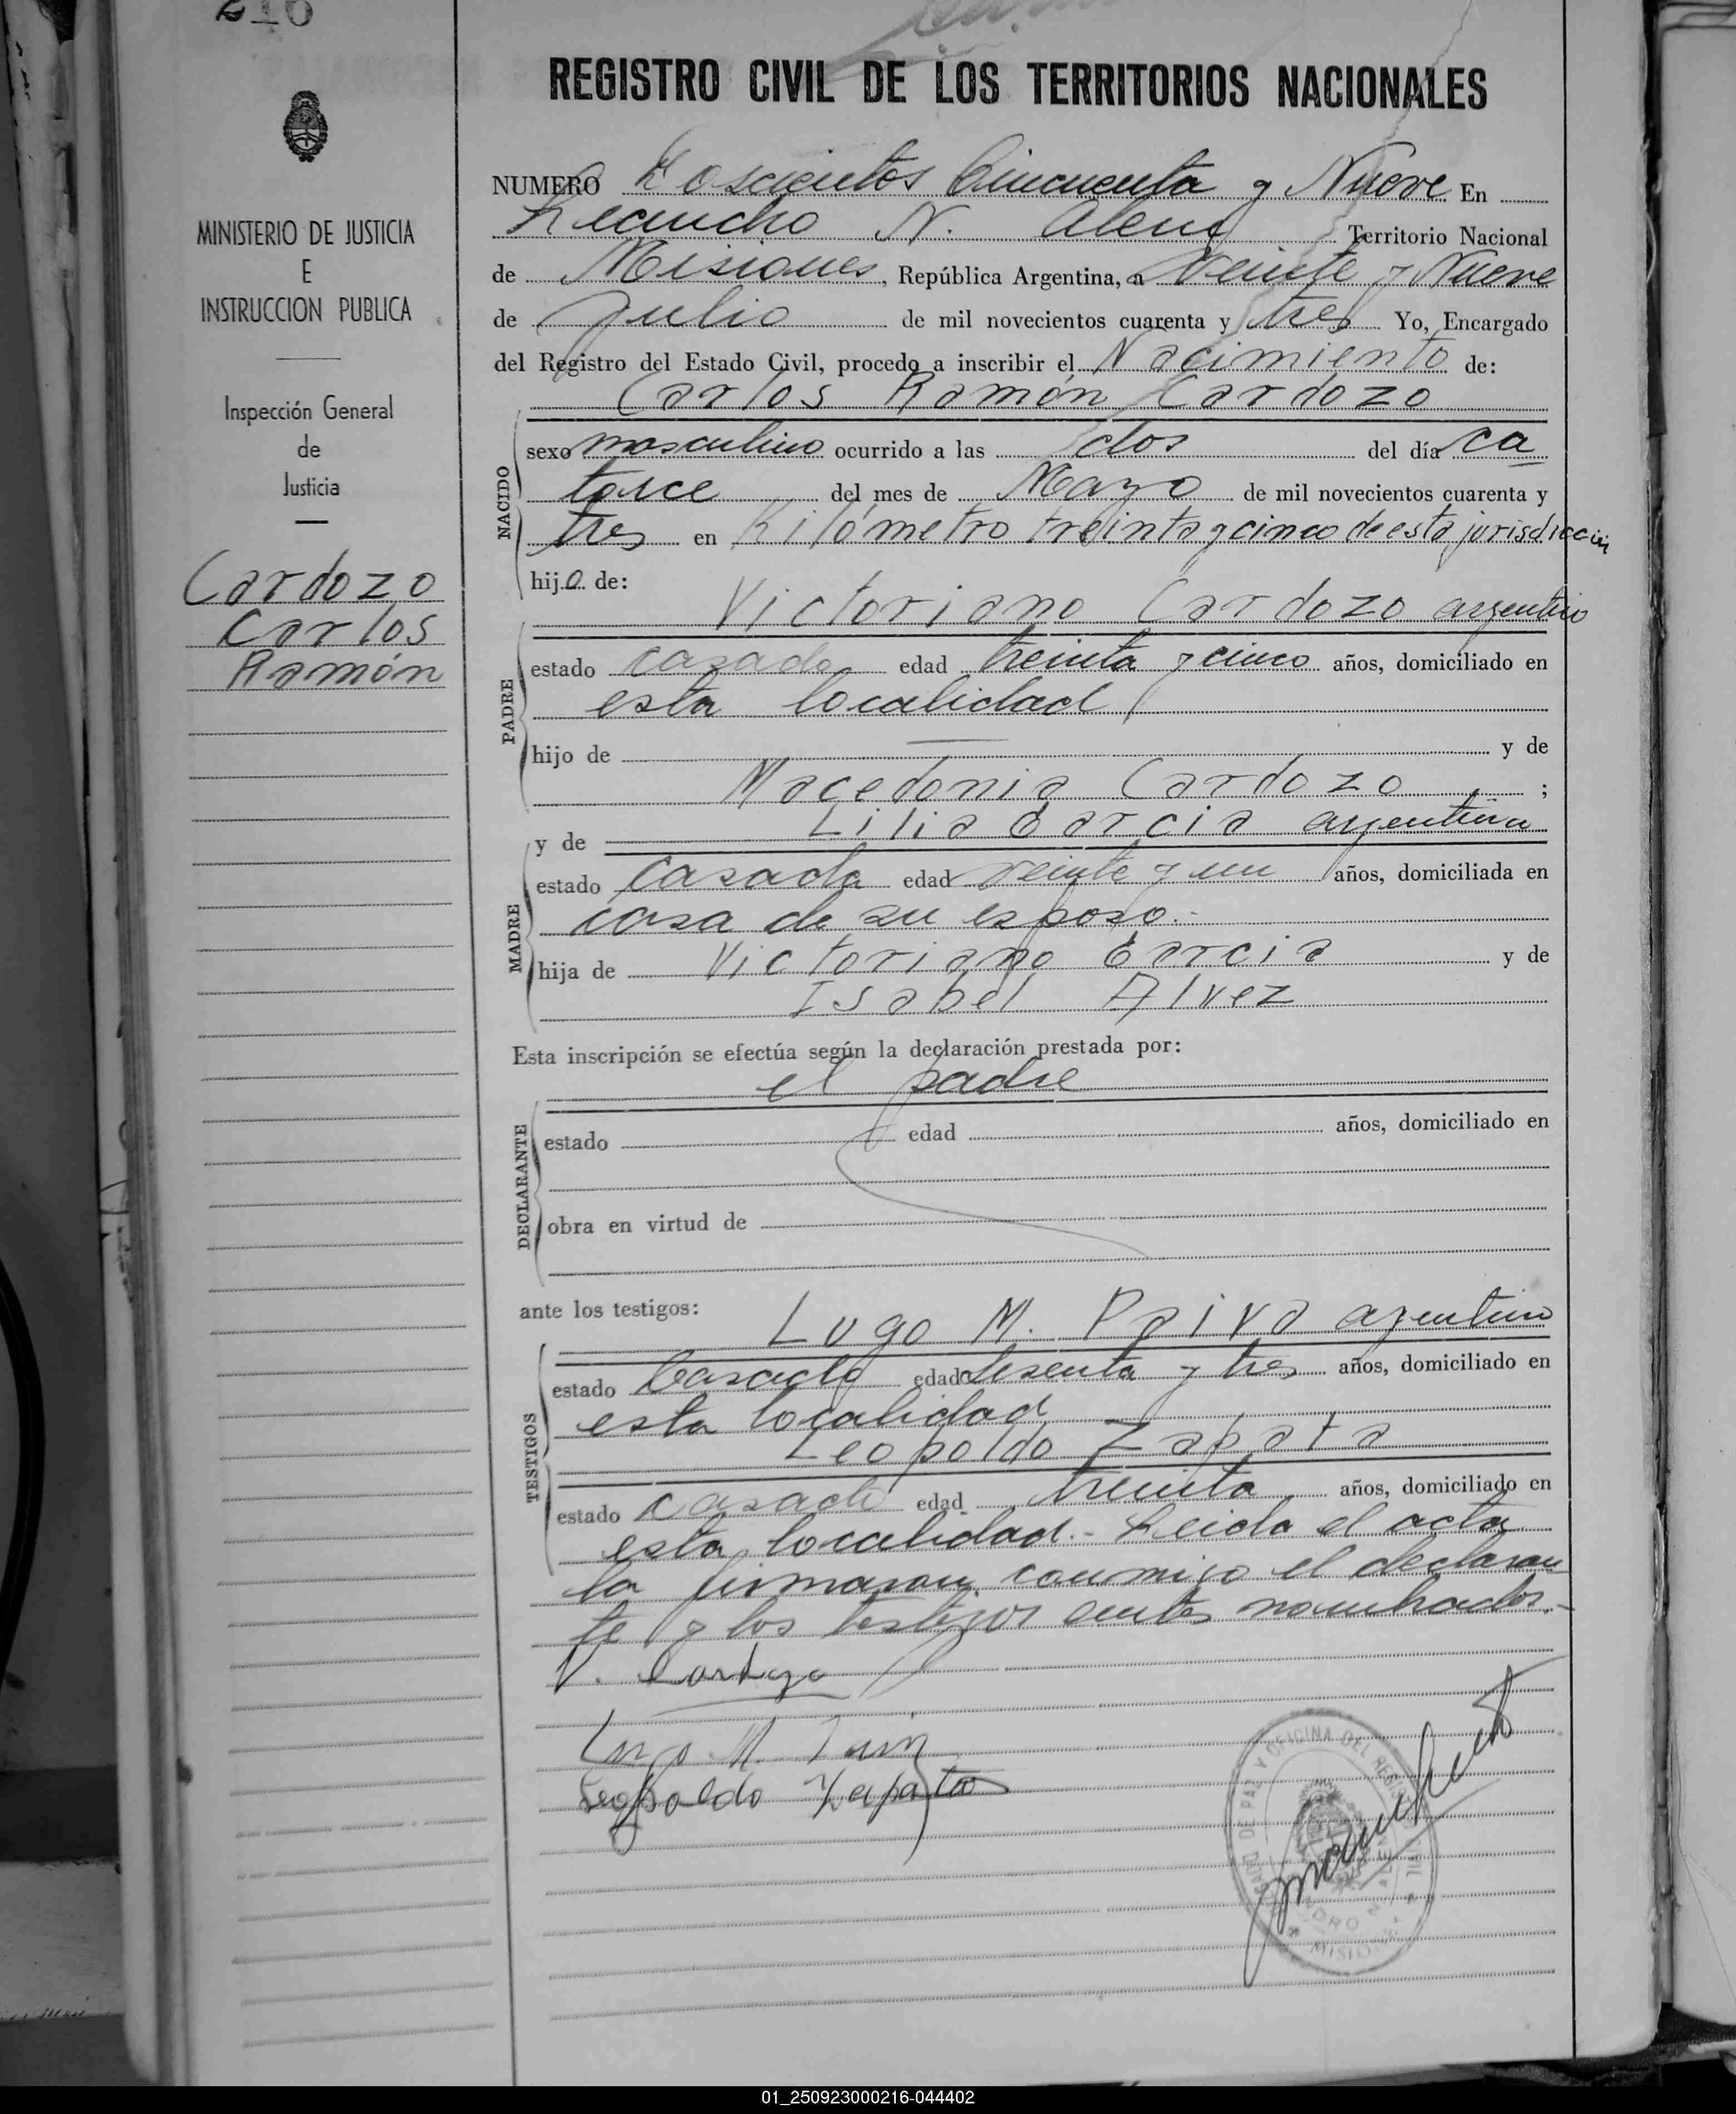 216
REGISTRO CIVIL DE LOS TERRITORIOS NACIONALES
MINISTERIO DE JUSTICIA
E
INSTRUCCION PUBLICA
Inspección General
de
Justicia
Cardozo
Carlos
Ramón
NUMERO Doscientos Cincuenta y Nueve En
Leandro N. Alem Territorio Nacional
de Misiones, República Argentina, a Veinte y Nueve
de Julio de mil novecientos cuarenta y tres Yo, Encargado
del Registro del Estado Civil, procedo a inscribir el Nacimiento de:
Carlos Ramón Cardozo
NACIDO
sexo masculino ocurrido a las dos del día ca
torce del mes de Mayo de mil novecientos cuarenta y
tres en Kilómetro treinta y cinco de esta jurisdicción
hijo de:
Victoriano Cardozo argentino
PADRE
estado casado edad treinta y cinco años, domiciliado en
esta localidad
hijo de — y de
Macedonia Cardozo ;
y de Lilia Garcia argentina
MADRE
estado Casada edad veinte y un años, domiciliada en
casa de su esposo.-
hija de Victoriano Garcia y de
Isabel Alvez
Esta inscripción se efectúa según la declaración prestada por:
el padre
DECLARANTE
estado edad años, domiciliado en
obra en virtud de
ante los testigos: Lugo M. Paiva argentino
TESTIGOS
estado Casado edad Sesenta y tres años, domiciliado en
esta localidad
Leopoldo Zapata
estado casado edad treinta años, domiciliado en
esta localidad.- Leida el acta
la firmaron conmigo el declaran
te y los testigos antes nombrados.-
V. Cardozo
Lugo M.
Leopoldo Zapata
OFICINA DEL REGISTRO CIVIL
MISIONES
01_250923000216-044402